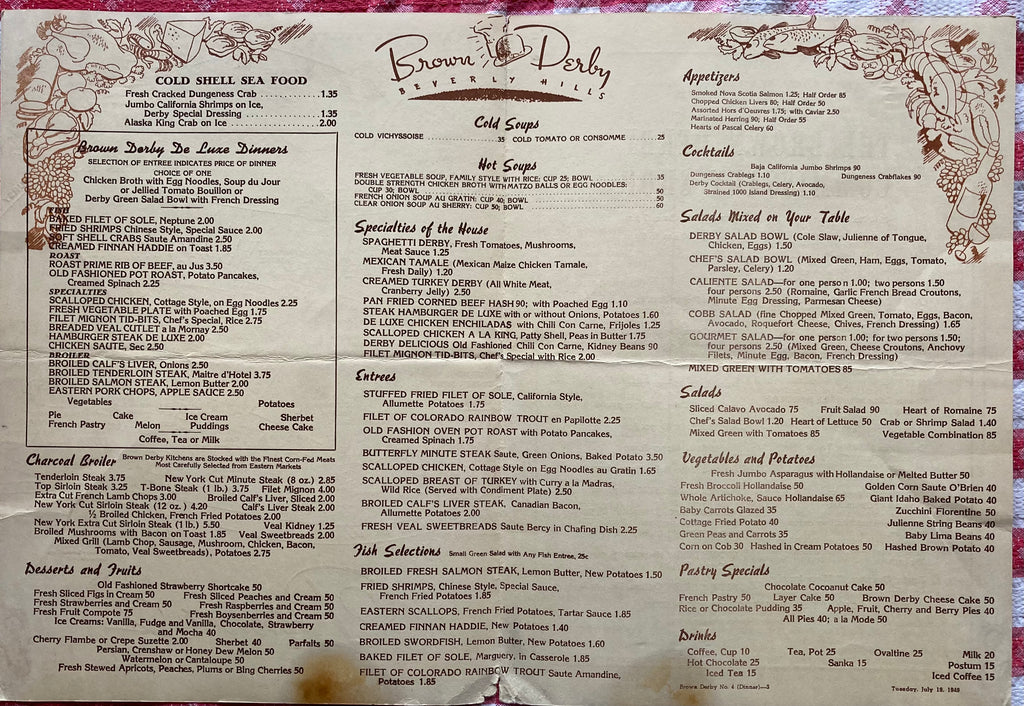 Brown Derby
BEVERLY HILLS
COLD SHELL SEA FOOD
Fresh Cracked Dungeness Crab .............1.35
Jumbo California Shrimps on Ice,
Derby Special Dressing .................1.35
Alaska King Crab on Ice ...................2.00
Brown Derby De Luxe Dinners
SELECTION OF ENTREE INDICATES PRICE OF DINNER
CHOICE OF ONE
Chicken Broth with Egg Noodles, Soup du Jour
or Jellied Tomato Bouillon or
Derby Green Salad Bowl with French Dressing
BAKED FILET OF SOLE, Neptune 2.00
FRIED SHRIMPS Chinese Style, Special Sauce 2.00
SOFT SHELL CRABS Saute Amandine 2.50
CREAMED FINNAN HADDIE on Toast 1.85
ROAST
ROAST PRIME RIB OF BEEF, au Jus 3.50
OLD FASHIONED POT ROAST, Potato Pancakes,
Creamed Spinach 2.25
SPECIALTIES
SCALLOPED CHICKEN, Cottage Style, on Egg Noodles 2.25
FRESH VEGETABLE PLATE with Poached Egg 1.75
FILET MIGNON TID-BITS, Chef's Special, Rice 2.75
BREADED VEAL CUTLET a la Mornay 2.50
HAMBURGER STEAK DE LUXE 2.00
CHICKEN SAUTE, Sec 2.50
BROILER
BROILED CALF'S LIVER, Onions 2.50
BROILED TENDERLOIN STEAK, Maitre d'Hotel 3.75
BROILED SALMON STEAK, Lemon Butter 2.00
EASTERN PORK CHOPS, APPLE SAUCE 2.50
Vegetables Potatoes
Pie Cake Ice Cream Sherbet
French Pastry Melon Puddings Cheese Cake
Coffee, Tea or Milk
Charcoal Broiler Brown Derby Kitchens are Stocked with the Finest Corn-Fed Meats
Most Carefully Selected from Eastern Markets
Tenderloin Steak 3.75 New York Cut Minute Steak (8 oz.) 2.85
Top Sirloin Steak 3.25 T-Bone Steak (1 lb.) 3.75 Filet Mignon 4.00
Extra Cut French Lamb Chops 3.00 Broiled Calf's Liver, Sliced 2.00
New York Cut Sirloin Steak (12 oz.) 4.20 Calf's Liver Steak 2.00
½ Broiled Chicken, French Fried Potatoes 2.00
New York Extra Cut Sirloin Steak (1 lb.) 5.50 Veal Kidney 1.25
Broiled Mushrooms with Bacon on Toast 1.85 Veal Sweetbreads 2.00
Mixed Grill (Lamb Chop, Sausage, Mushroom, Chicken, Bacon,
Tomato, Veal Sweetbreads), Potatoes 2.75
Desserts and Fruits
Old Fashioned Strawberry Shortcake 50
Fresh Sliced Figs in Cream 50 Fresh Sliced Peaches and Cream 50
Fresh Strawberries and Cream 50 Fresh Raspberries and Cream 50
Fresh Fruit Compote 75 Fresh Boysenberries and Cream 50
Ice Creams: Vanilla, Fudge and Vanilla, Chocolate, Strawberry
and Mocha 40
Cherry Flambe or Crepe Suzette 2.00 Sherbet 40 Parfaits 50
Persian, Crenshaw or Honey Dew Melon 50
Watermelon or Cantaloupe 50
Fresh Stewed Apricots, Peaches, Plums or Bing Cherries 50
Cold Soups
COLD VICHYSSOISE ..................35 COLD TOMATO OR CONSOMME ............25
Hot Soups
FRESH VEGETABLE SOUP, FAMILY STYLE WITH RICE: CUP 25; BOWL ............35
DOUBLE STRENGTH CHICKEN BROTH WITH MATZO BALLS OR EGG NOODLES:
CUP 30; BOWL ............50
FRENCH ONION SOUP AU GRATIN: CUP 40; BOWL ............50
CLEAR ONION SOUP AU SHERRY: CUP 50; BOWL ............60
Specialties of the House
SPAGHETTI DERBY, Fresh Tomatoes, Mushrooms,
Meat Sauce 1.25
MEXICAN TAMALE (Mexican Maize Chicken Tamale,
Fresh Daily) 1.20
CREAMED TURKEY DERBY (All White Meat,
Cranberry Jelly) 2.50
PAN FRIED CORNED BEEF HASH 90; with Poached Egg 1.10
STEAK HAMBURGER DE LUXE with or without Onions, Potatoes 1.60
DE LUXE CHICKEN ENCHILADAS with Chili Con Carne, Frijoles 1.25
SCALLOPED CHICKEN A LA KING, Patty Shell, Peas in Butter 1.75
DERBY DELICIOUS Old Fashioned Chili Con Carne, Kidney Beans 90
FILET MIGNON TID-BITS, Chef's Special with Rice 2.00
Entrees
STUFFED FRIED FILET OF SOLE, California Style,
Allumette Potatoes 1.75
FILET OF COLORADO RAINBOW TROUT en Papilotte 2.25
OLD FASHION OVEN POT ROAST with Potato Pancakes,
Creamed Spinach 1.75
BUTTERFLY MINUTE STEAK Saute, Green Onions, Baked Potato 3.50
SCALLOPED CHICKEN, Cottage Style on Egg Noodles au Gratin 1.65
SCALLOPED BREAST OF TURKEY with Curry a la Madras,
Wild Rice (Served with Condiment Plate) 2.50
BROILED CALF'S LIVER STEAK, Canadian Bacon,
Allumette Potatoes 2.00
FRESH VEAL SWEETBREADS Saute Bercy in Chafing Dish 2.25
Fish Selections Small Green Salad with Any Fish Entree, 25c
BROILED FRESH SALMON STEAK, Lemon Butter, New Potatoes 1.50
FRIED SHRIMPS, Chinese Style, Special Sauce,
French Fried Potatoes 1.85
EASTERN SCALLOPS, French Fried Potatoes, Tartar Sauce 1.85
CREAMED FINNAN HADDIE, New Potatoes 1.40
BROILED SWORDFISH, Lemon Butter, New Potatoes 1.60
BAKED FILET OF SOLE, Marguery, in Casserole 1.85
FILET OF COLORADO RAINBOW TROUT Saute Amandine,
Potatoes 1.85
Appetizers
Smoked Nova Scotia Salmon 1.25; Half Order 85
Chopped Chicken Livers 80; Half Order 50
Assorted Hors d'Oeuvres 1.75; with Caviar 2.50
Marinated Herring 90; Half Order 55
Hearts of Pascal Celery 60
Cocktails
Baja California Jumbo Shrimps 90
Dungeness Crablegs 1.10 Dungeness Crabflakes 90
Derby Cocktail (Crablegs, Celery, Avocado,
Strained 1000 Island Dressing) 1.10
Salads Mixed on Your Table
DERBY SALAD BOWL (Cole Slaw, Julienne of Tongue,
Chicken, Eggs) 1.50
CHEF'S SALAD BOWL (Mixed Green, Ham, Eggs, Tomato,
Parsley, Celery) 1.20
CALIENTE SALAD—for one person 1.00; two persons 1.50
four persons 2.50 (Romaine, Garlic French Bread Croutons,
Minute Egg Dressing, Parmesan Cheese)
COBB SALAD (fine Chopped Mixed Green, Tomato, Eggs, Bacon,
Avocado, Roquefort Cheese, Chives, French Dressing) 1.65
GOURMET SALAD—for one person 1.00; for two persons 1.50;
four persons 2.50 (Mixed Green, Cheese Croutons, Anchovy
Filets, Minute Egg, Bacon, French Dressing)
MIXED GREEN WITH TOMATOES 85
Salads
Sliced Calavo Avocado 75 Fruit Salad 90 Heart of Romaine 75
Chef's Salad Bowl 1.20 Heart of Lettuce 50 Crab or Shrimp Salad 1.40
Mixed Green with Tomatoes 85 Vegetable Combination 85
Vegetables and Potatoes
Fresh Jumbo Asparagus with Hollandaise or Melted Butter 50
Fresh Broccoli Hollandaise 50 Golden Corn Saute O'Brien 40
Whole Artichoke, Sauce Hollandaise 65 Giant Idaho Baked Potato 40
Baby Carrots Glazed 35 Zucchini Florentine 50
Cottage Fried Potato 40 Julienne String Beans 40
Green Peas and Carrots 35 Baby Lima Beans 40
Corn on Cob 30 Hashed in Cream Potatoes 50 Hashed Brown Potato 40
Pastry Specials
Chocolate Cocoanut Cake 50
French Pastry 50 Layer Cake 50 Brown Derby Cheese Cake 50
Rice or Chocolate Pudding 35 Apple, Fruit, Cherry and Berry Pies 40
All Pies 40; a la Mode 50
Drinks
Coffee, Cup 10 Tea, Pot 25 Ovaltine 25 Milk 20
Hot Chocolate 25 Sanka 15 Postum 15
Iced Tea 15 Iced Coffee 15
Brown Derby No. 4 (Dinner)—3 Tuesday, July 19, 1949